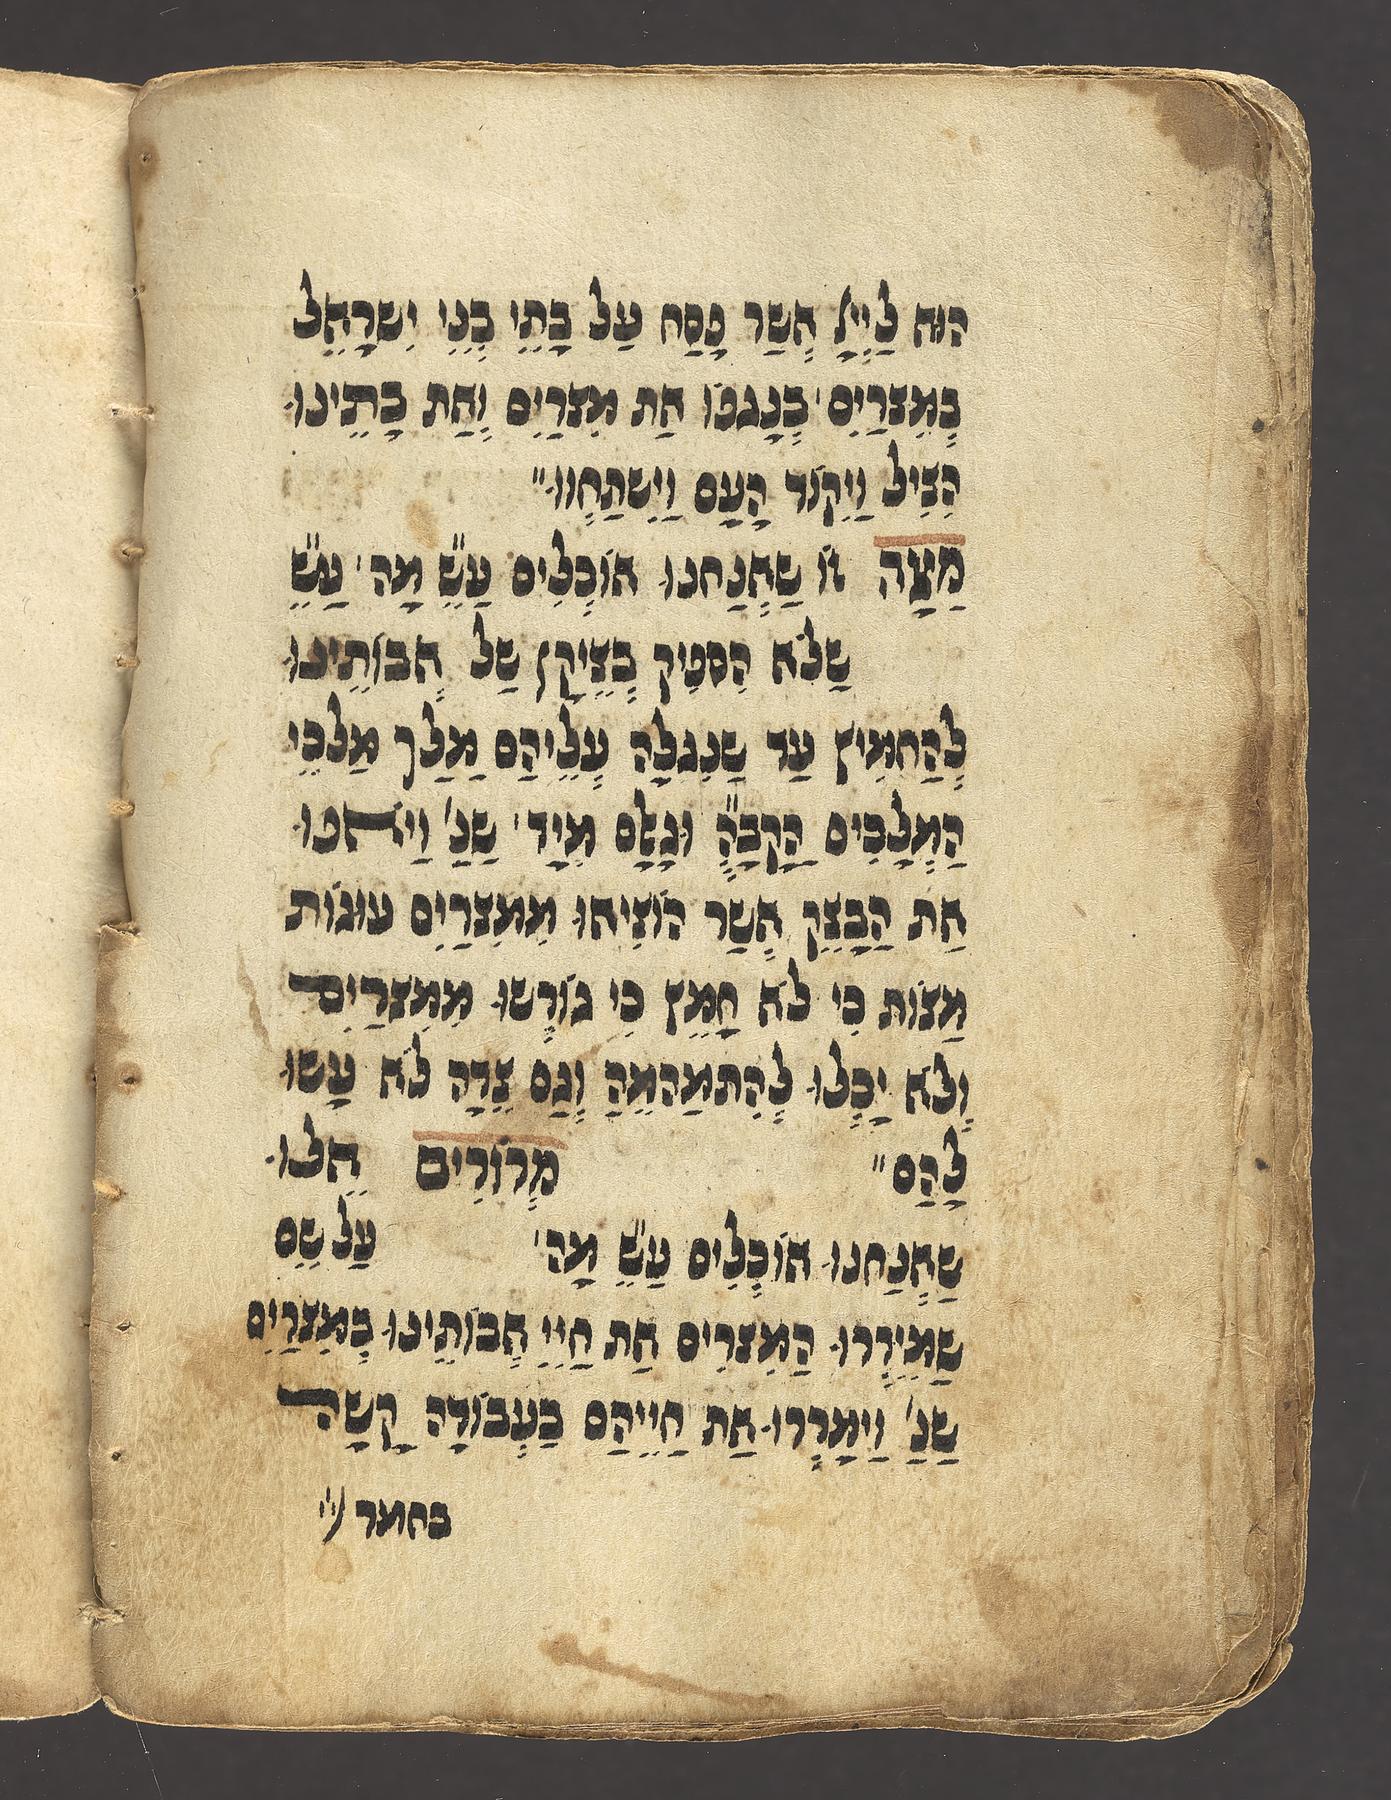 הוּא לַיְיָ אֲשַר פָסַח עַל בָתֵי בְנֵי יִשרָאֵל
בְמִצרַיִם' בְנָגפוֹ אַת מִצרַיִם וְאַת בָתֵינוּ
הִצִיל וַיִקוֹד הָעַם וַיִשתַחֲווּ"
מַצָה זוֹ שַאֲנַחנוּ אוֹכְלִים עַ"שֵ מַה' עַ"שֵ
שַלֹא הִספִיק בְצֵיקָן שַל אֲבוֹתֵינוּ
לְהַחמִיץ עַד שַנִגלָה עֲלֵיהַם מַלַך מַלכֵי
הַמְלָכִים הַקָבָ"הְ וּגְאָלָם מִיָד' שַנַ' וַיֹאפוּ
אַת הַבָצֵק אֲשַר הוֹצִיאוּ מִמִצרַיִם עוּגוֹת
מַצוֹת כִי לֹא חָמֵץ כִי גוֹרְשוּ מִמִצרַיִם
וְלֹא יָכְלוּ לְהִתמַהמֵהַ וְגַם צֵדָה לֹא עָשוּ
לָהַם" מְרוֹרִים אֵלוּ
שַאֲנַחנוּ אוֹכְלִים עַ"שֵ מַה' עַל שֵם
שַמֵירְרוּ הַמִצרִים אַת חַיֵי אֲבוֹתֵינוּ בְמִצרַיִם
שַנַ' וַימָרְרוּ אַת חַיֵיהַם בַעֲבוֹדָה קָשָה
בחומר